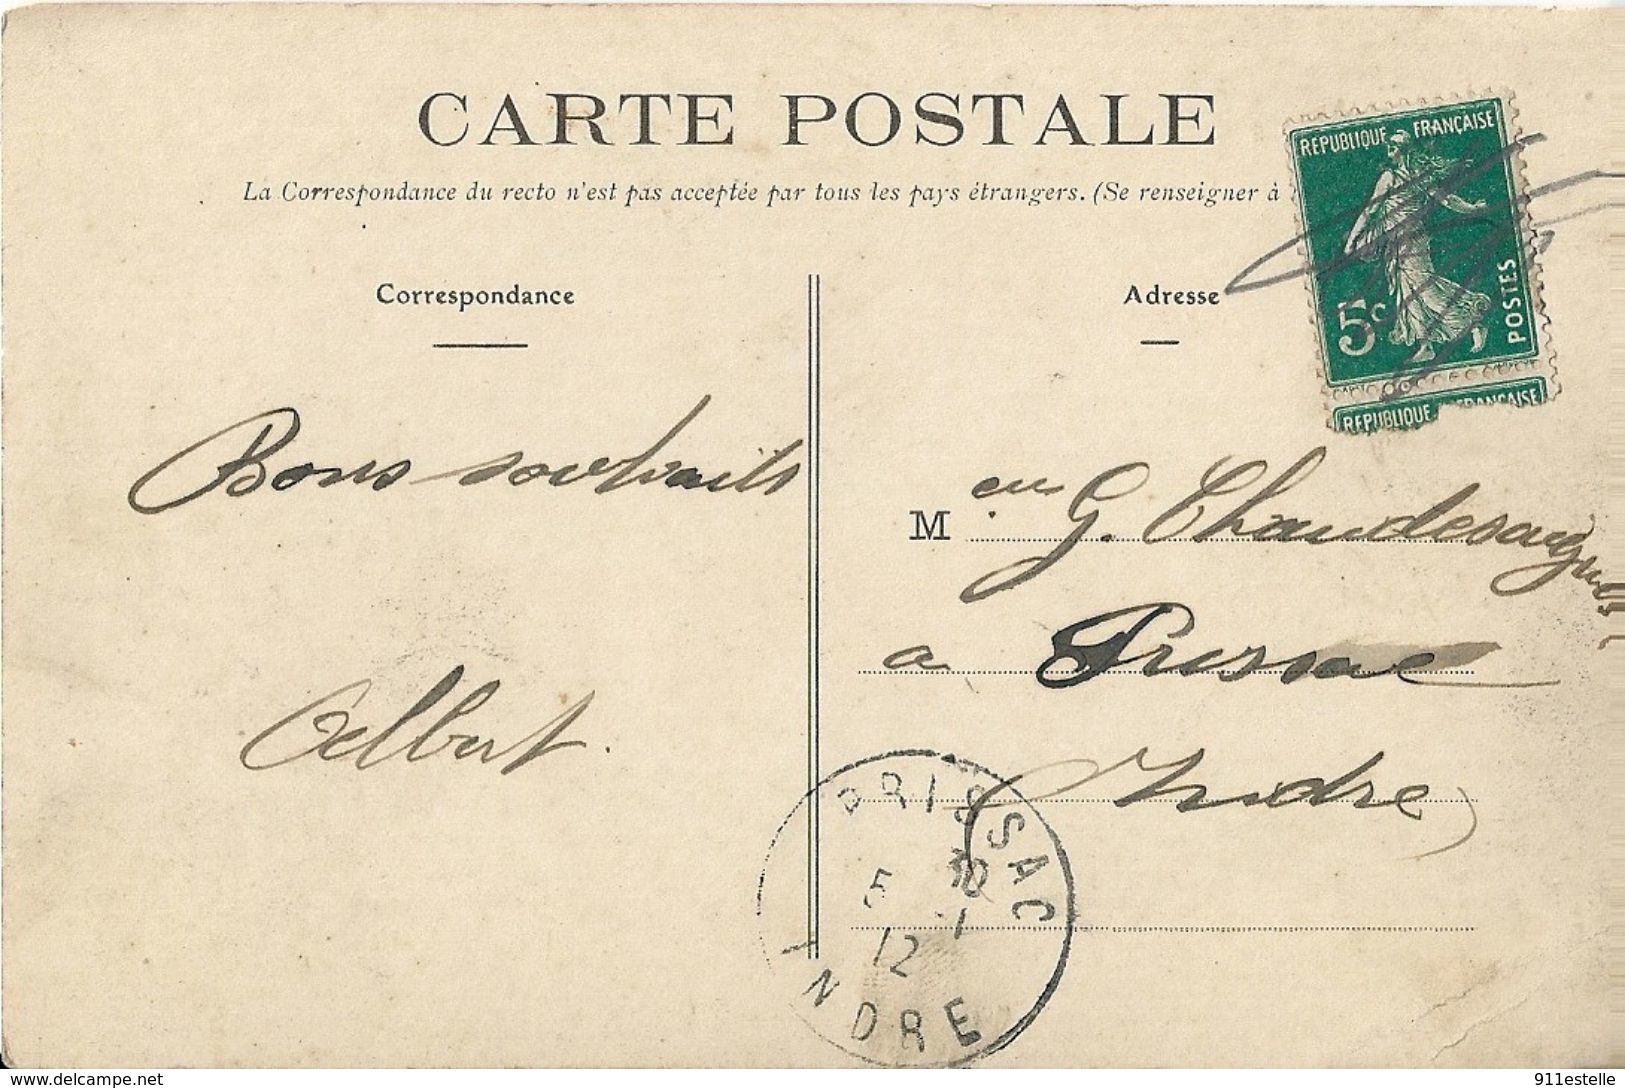 CARTE POSTALE
La Correspondance du recto n'est pas acceptée par tous les pays étrangers. (Se renseigner à
RÉPUBLIQUE FRANÇAISE
5c
POSTES
RÉPUBLIQUE FRANÇAISE
Correspondance
Adresse
Bons souhaits
Albert.
M G. Chaudesaigues
a Prissac
Indre
PRISSAC
30
5 -1
12
INDRE
delcampe.net
911estelle